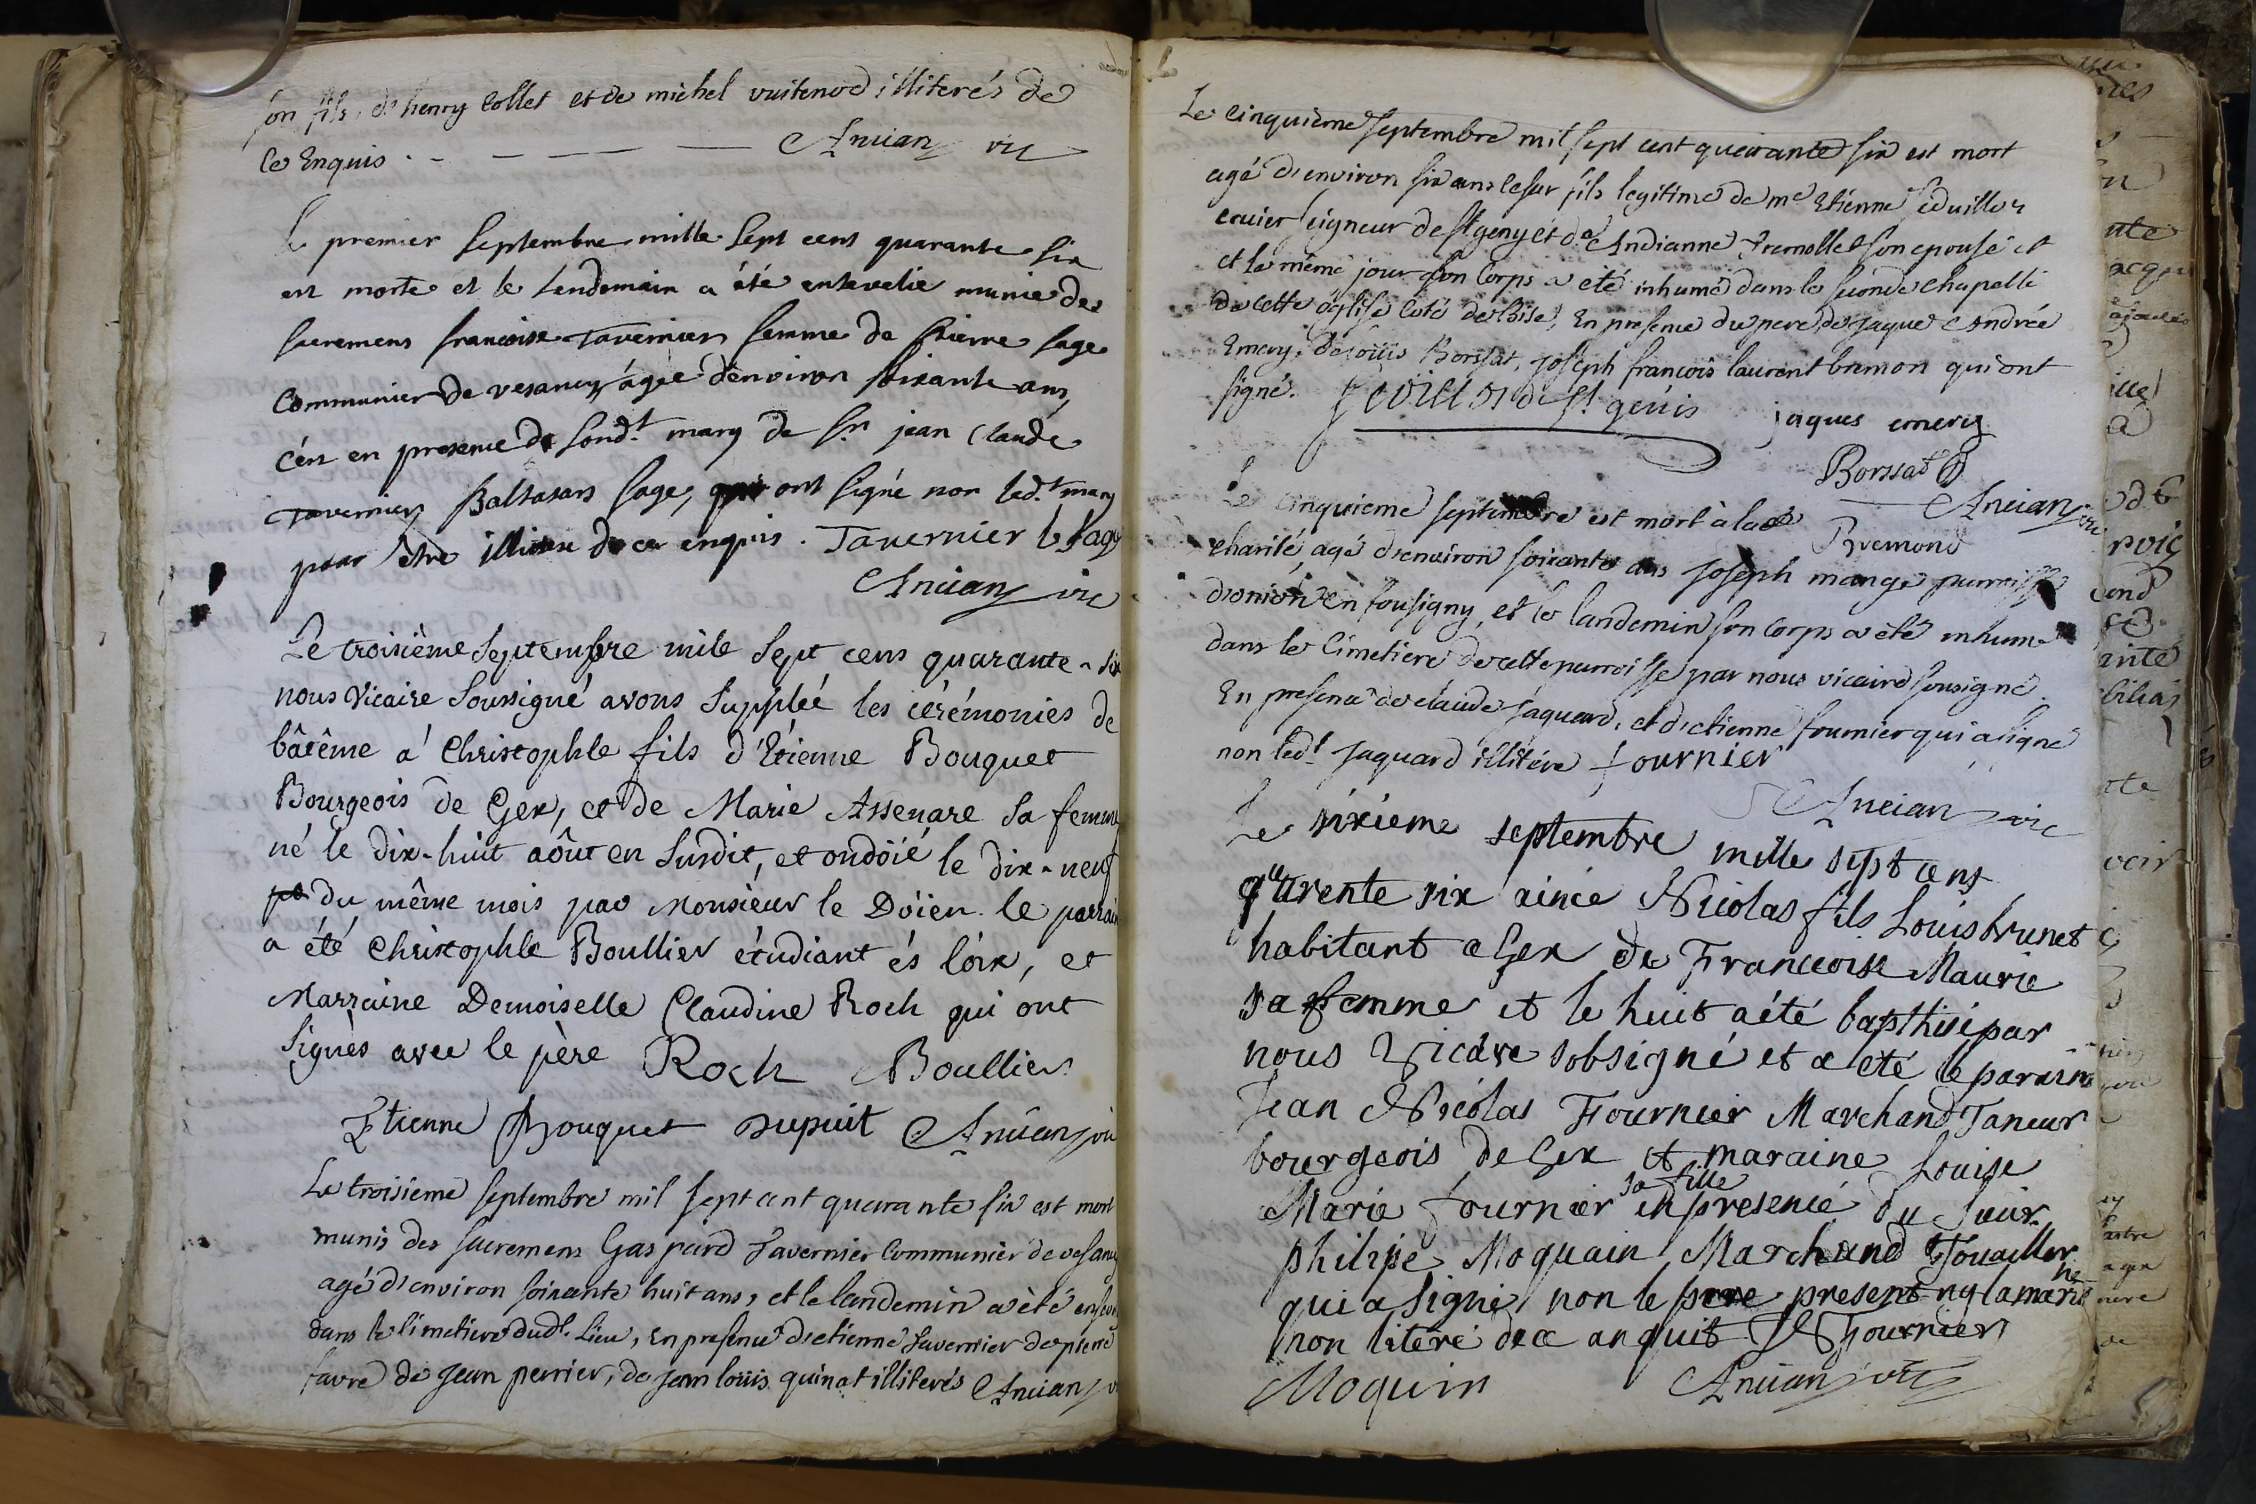 son fils, de henry Collet et de michel vuitenod illiterés de
ce Enquis. Ancian vic
Le premier septembre mille sept cent quarante six
est morte et le lendemain a été ensevelie munie des
sacremens francoise Tavernier femme de Pierre sage
Communier de vesancy, agée d'environ soixante ans,
c'est en presence de sond.t mary de s.r jean Claude
Tavernier Baltasars sage, qui ont signé non led.t mary
pour être illitere de ce enquis. Tavernier b sage
Ancian vic
Le troisième septembre mile sept cens quarante-six
nous Vicaire soussigné avons suppléé les cérémonies de
bâtême a' Christophle fils d'Etienne Bouquet
Bourgeois de Gex, et de Marie Assenare sa femme
né le dix-huit aôut en susdit, et ondoié le dix-neuf
du même mois par Monsieur le Doïen. le parrain
a été Christophle Boullier étudiant és loix, et
Marraine Demoiselle Claudine Roch qui ont
signès avec le père Roch Boullier
Etienne Bouquet Dupuit Ancian vic
Le troisieme septembre mil sept cent quarante six est mort
munis des sacremens Gaspard Tavernier Communier de vesancy
agé d'environ soixante huit ans, et le landemin a èté enseveli
dans le cimetiere dud.t Lieu, En presence d'etienne Tavernier de pierre
favre de Jean perrier, de jean louis quinat illiterés Ancian vic
Le cinquième septembre mil sept cent quarante six est mort
agé d'environ six ans Cesar fils legitime de m.e Etienne feuillet
ecuier seigneur de st geny et d.e Andianne Tremollet son epouse et
et le même jour son Corps a eté inhumé dans le seconde Chapelle
de cette église Coté de bise, En presence du pere, de Jaque Andrée
Emery, de Loüis Borssat, Joseph françois laurent bremon qui ont
signé. feuillet de st genis jaques emery
Borssat
Ancian vic
Bremond
Le cinquieme septembre est mort à la
charité, agé d'environ soixante ans Joseph mange parroisse
d'onion en fousigny, et le landemin son Corps a èté inhumé
dans le Cimetiere de cette parroisse par nous vicaire sousigné.
En presence de claude jaquard, et d'etienne fournier qui a signé
non led.t Jaquard illitéré fournier
Ancian vic
Le sixiéme septembre mille sept cens
quarente six ainée Nicolas fils Louis brunet
habitant a Gex de Francoise Maurie
sa femme et le huit a été bapthisé par
nous Vicare sobsigné et a eté le parain
Jean Nicolas Fournier Marchand Taneur
bourgeois de Gex et maraine Louise
Marie fournier sa fille en presence du sieur
philipe Moquain Marchand
qui a signé, non le pere present ny la marene
non literé de ce anquit JN Fournier
Moquin Ancian vic